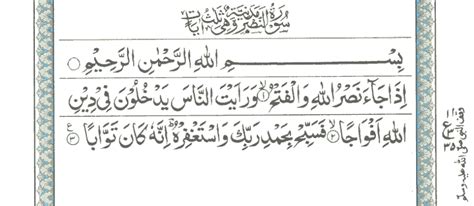 سُوْرَةُ النَّصْرِ مَدَنِيَّةٌ وَّهِيَ ثَلٰثُ اٰيَاتٍ
بِسْمِ اللهِ الرَّحْمٰنِ الرَّحِيْمِ
اِذَا جَآءَ نَصْرُ اللهِ وَالْفَتْحُ ۙ﴿۱﴾ وَرَاَيْتَ النَّاسَ يَدْخُلُوْنَ فِيْ دِيْنِ
اللهِ اَفْوَاجًا ۙ﴿۲﴾ فَسَبِّحْ بِحَمْدِ رَبِّكَ وَاسْتَغْفِرْهُ ؕ اِنَّهٗ كَانَ تَوَّابًا ﴿۳﴾